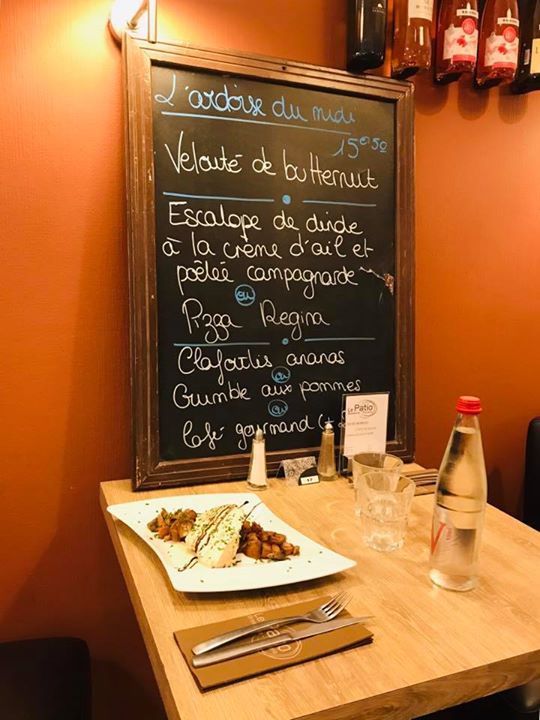 L'ardoise du midi
15€50
Velouté de butternut
Escalope de dinde
à la crème d'ail et
poêlée campagnarde
ou
Pizza Regina
Clafoutis ananas
ou
Crumble aux pommes
ou
Café gourmand (+
Le Patio